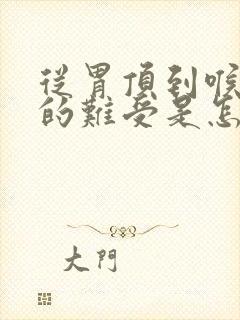 從胃頂到喉
的難受是怎
大門